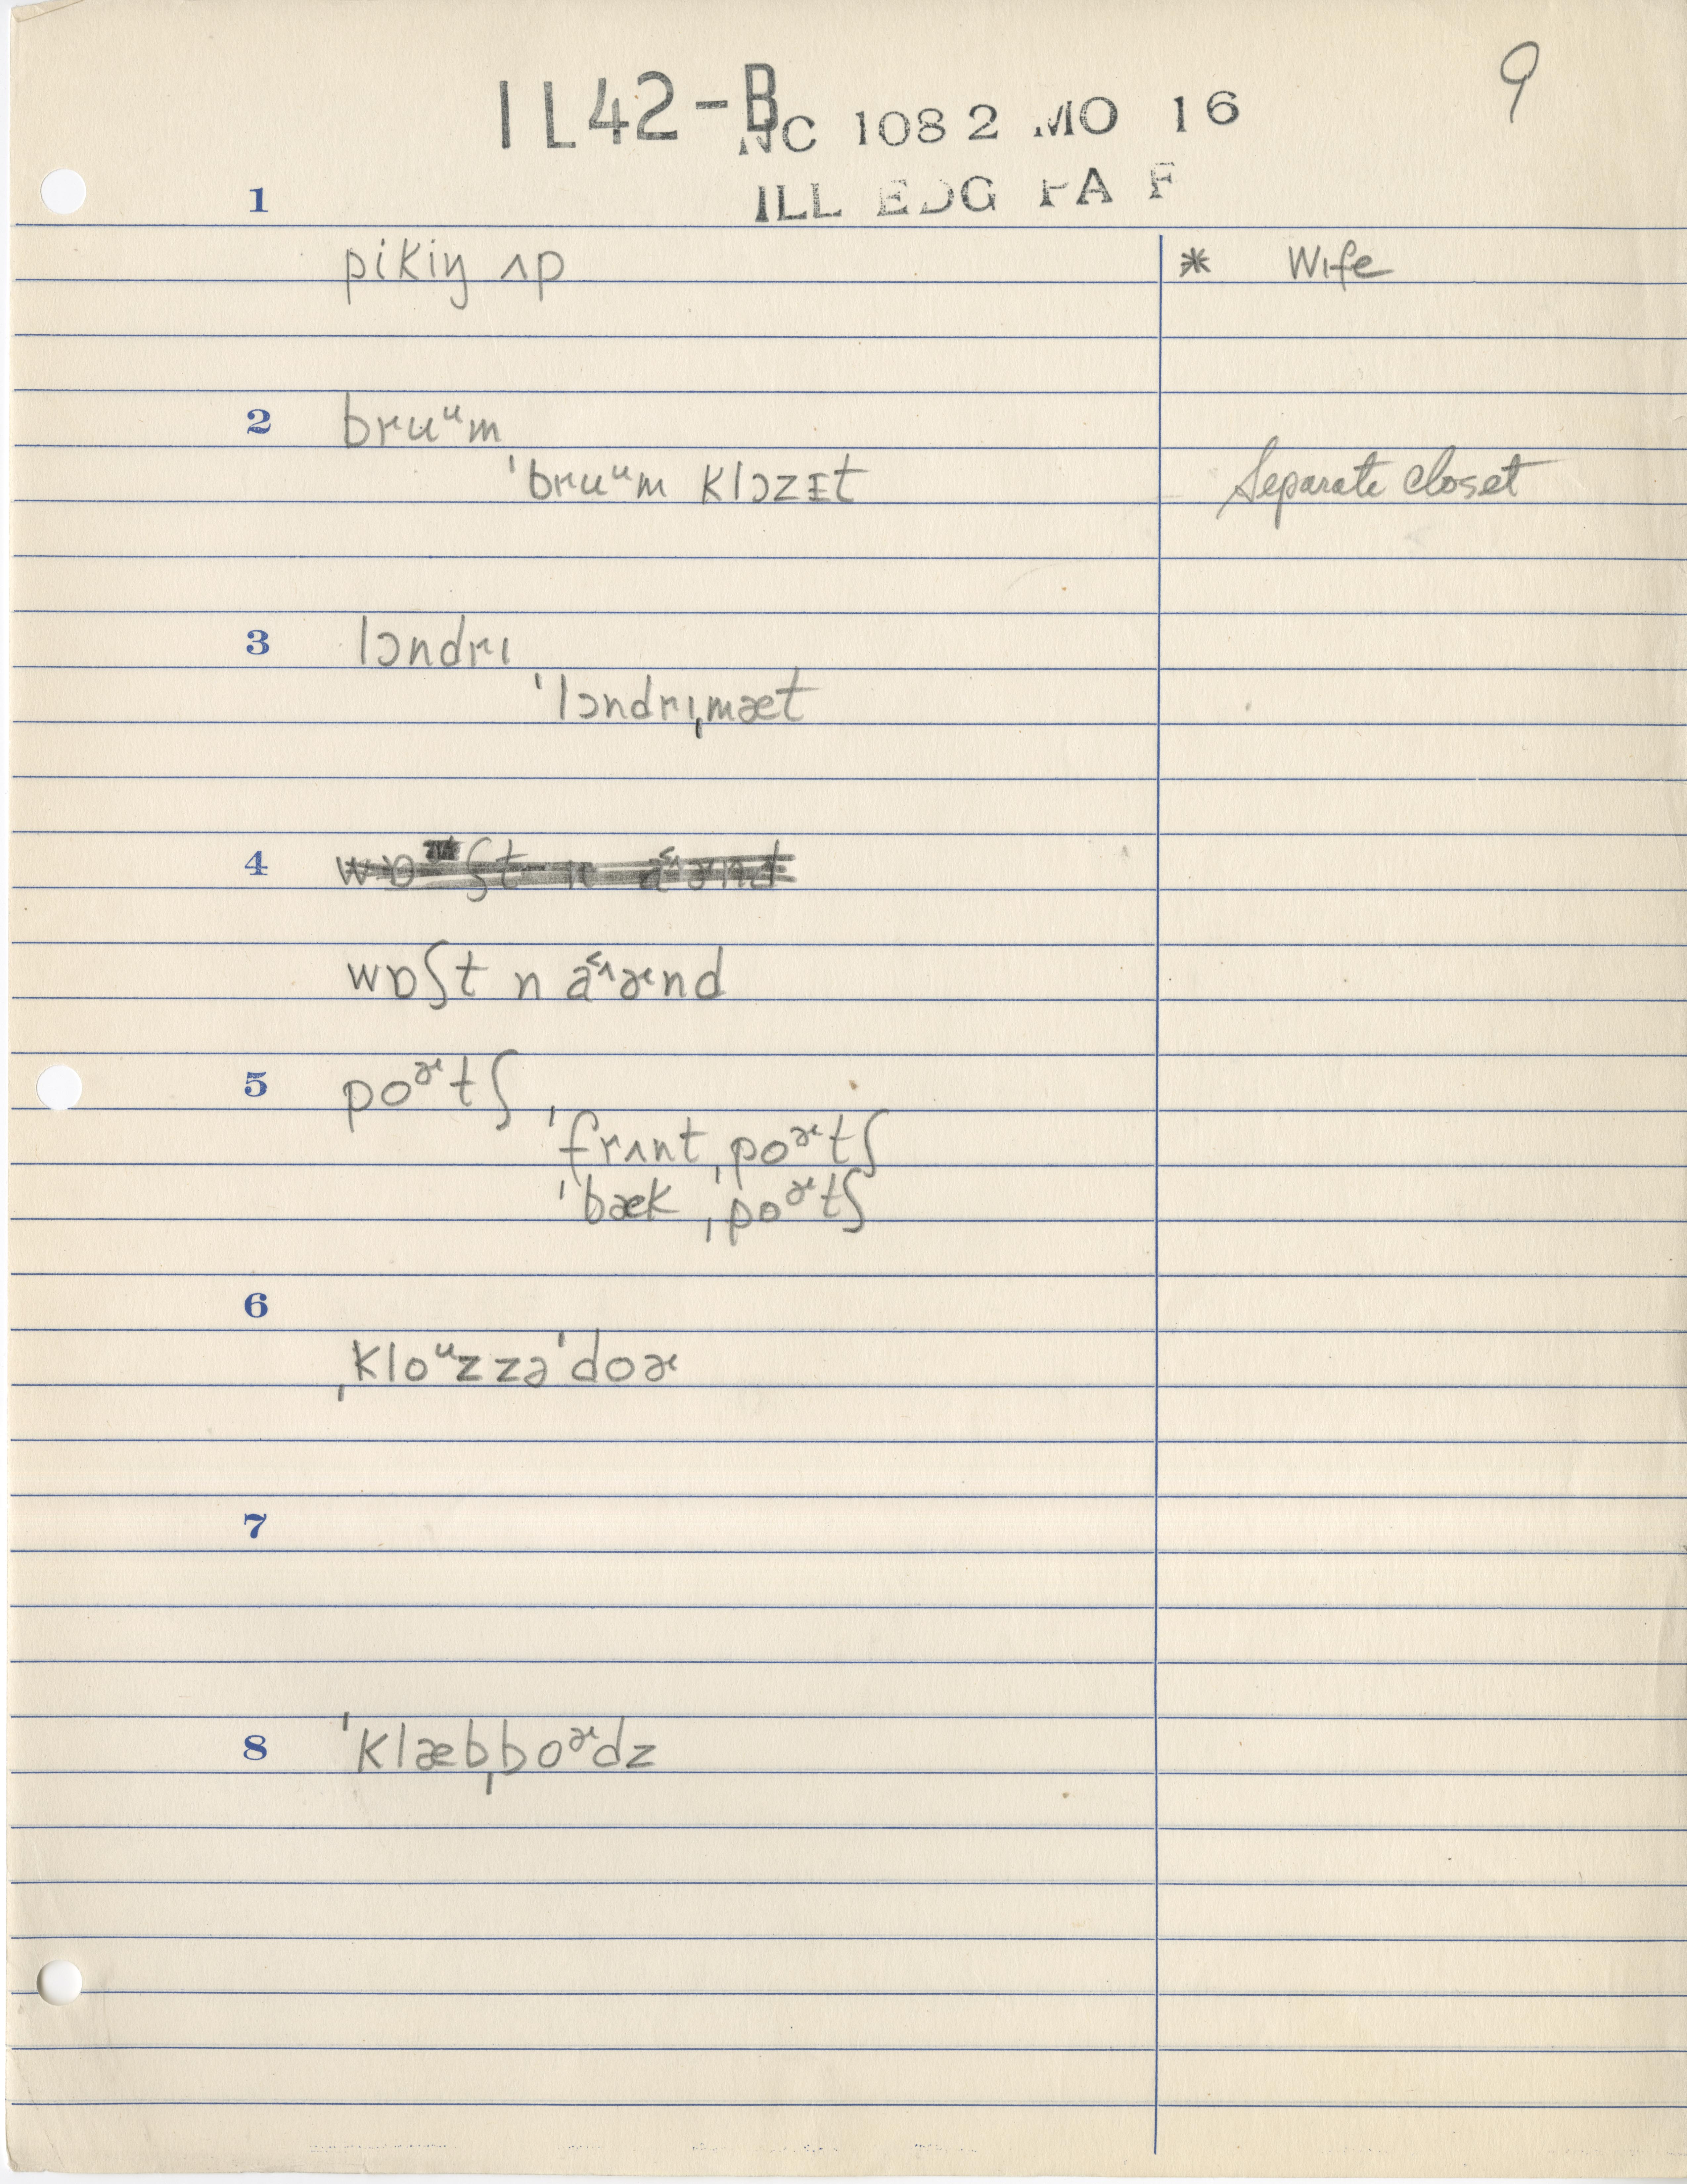 9
IL42-B
NC 1082 MO 16
ILL EDG PA F
1
pikiŋ ʌp * Wife
2 bruᵘm
ˈbruᵘm klɔzɪt Separate closet
3 lɔndrɪ
ˈlɔndrɪˌmæt
4
wɒʃt n aɚnd
5 poᵊʳtʃ,
ˈfrʌnt ˌpoᵊʳtʃ
ˈbæk ˌpoᵊʳtʃ
6
ˌkloᵘz zə ˈdoɚ
7
8 ˈklæbˌboᵊʳdz